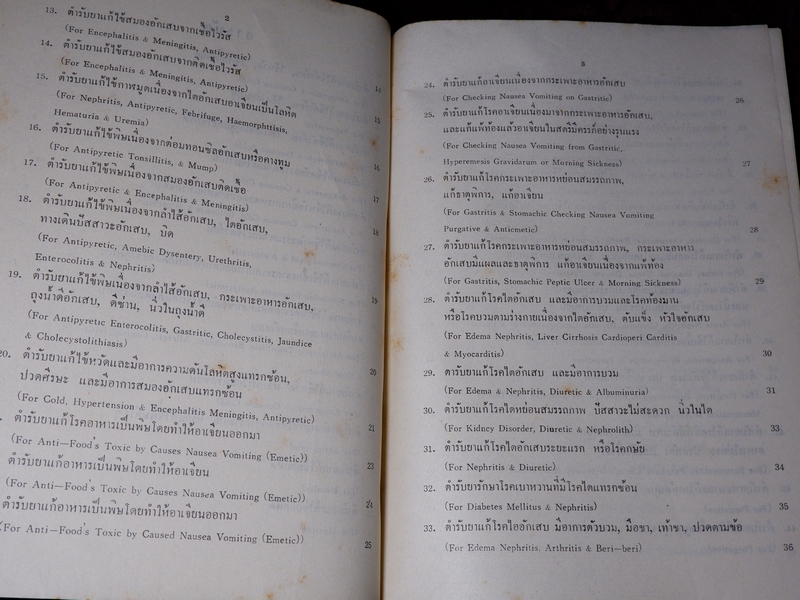 2
13. ตำรับยาแก้ไข้สมองอักเสบจากเชื้อไวรัส
(For Encephalitis & Meningitis, Antipyretic)
14. ตำรับยาแก้ไข้สมองอักเสบจากติดเชื้อไวรัส
(For Encephalitis & Meningitis, Antipyretic) 14
15. ตำรับยาแก้ไข้กาฬมูตเนื่องจากไตอักเสบอาเจียนเป็นโลหิต
(For Nephritis, Antipyretic, Febrifuge, Haemorphtisis, 15
Hematuria & Uremia)
16. ตำรับยาแก้ไข้พิษเนื่องจากต่อมทอนซิลอักเสบหรือคางทูม
(For Antipyretic Tonsillitis, & Mump) 16
17. ตำรับยาแก้ไข้พิษเนื่องจากสมองอักเสบติดเชื้อ
(For Antipyretic & Encephalitis & Meningitis) 17
18. ตำรับยาแก้ไข้พิษเนื่องจากลำไส้อักเสบ, ไตอักเสบ, 18
ทางเดินปัสสาวะอักเสบ, บิด
(For Antipyretic, Amebic Dysentery, Urethritis,
Enterocolitis & Nephritis)
19. ตำรับยาแก้ไข้พิษเนื่องจากลำไส้อักเสบ, กระเพาะอาหารอักเสบ, 19
ถุงน้ำดีอักเสบ, ดีซ่าน, นิ่วในถุงน้ำดี
(For Antipyretic Enterocolitis, Gastritic, Cholecystitis, Jaundice
& Cholecystolithiasis)
20. ตำรับยาแก้ไข้หวัดและมีอาการความดันโลหิตสูงแทรกซ้อน, 20
ปวดศีรษะ และมีอาการสมองอักเสบแทรกซ้อน
(For Cold, Hypertension & Encephalitis Meningitis, Antipyretic)
ตำรับยาแก้โรคอาหารเป็นพิษโดยทำให้อาเจียนออกมา 21
(For Anti—Food's Toxic by Causes Nausea Vomiting (Emetic))
ตำรับยาแก้อาหารเป็นพิษโดยทำให้อาเจียน 23
(For Anti—Food's Toxic by Causes Nausea Vomiting (Emetic))
ตำรับยาแก้อาหารเป็นพิษโดยทำให้อาเจียนออกมา 24
(For Anti—Food's Toxic by Caused Nausea Vomiting (Emetic)) 25
3
24. ตำรับยาแก้อาเจียนเนื่องจากกระเพาะอาหารอักเสบ
(For Checking Nausea Vomiting on Gastritic) 26
25. ตำรับยาแก้โรคอาเจียนเนื่องมาจากกระเพาะอาหารอักเสบ,
และแก้แพ้ท้องแล้วอาเจียนในสตรีมีครรภ์อย่างรุนแรง
(For Checking Nausea Vomiting from Gastritic,
Hyperemesis Gravidarum or Morning Sickness) 27
26. ตำรับยาแก้โรคกระเพาะอาหารหย่อนสมรรถภาพ,
แก้ธาตุพิการ, แก้อาเจียน
(For Gastritis & Stomachic Checking Nausea Vomiting
Purgative & Anticmetic) 28
27. ตำรับยาแก้โรคกระเพาะอาหารหย่อนสมรรถภาพ, กระเพาะอาหาร
อักเสบมีแผลและธาตุพิการ แก้อาเจียนเนื่องจากแพ้ท้อง
(For Gastritis, Stomachic Peptic Ulcer & Morning Sickness) 29
28. ตำรับยาแก้โรคไตอักเสบ และมีอาการบวมและโรคท้องมาน
หรือโรคบวมตามร่างกายเนื่องจากไตอักเสบ, ตับแข็ง หัวใจอักเสบ
(For Edema Nephritis, Liver Cirrhosis Cardioperi Carditis
& Myocarditis) 30
29. ตำรับยาแก้โรคไตอักเสบ และมีอาการบวม
(For Edema & Nephritis, Diuretic & Albuminuria) 31
30. ตำรับยาแก้โรคไตหย่อนสมรรถภาพ ปัสสาวะไม่สะดวก นิ่วในไต
(For Kidney Disorder, Diuretic & Nephrolith) 33
31. ตำรับยาแก้โรคไตอักเสบระยะแรก หรือโรคกษัย
(For Nephritis & Diuretic) 34
32. ตำรับยารักษาโรคเบาหวานที่มีโรคไตแทรกซ้อน
(For Diabetes Mellitus & Nephritis) 35
33. ตำรับยาแก้โรคไออักเสบ มีอาการตัวบวม, มือชา, เท้าชา, ปวดตามข้อ
(For Edema Nephritis, Arthritis & Beri—beri) 36